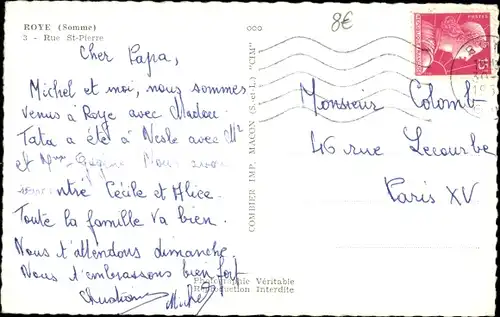 ROYE (Somme)
3 - Rue St-Pierre
8€
Cher Papa,
Michel et moi, nous sommes
venus à Roye avec Madou.
Tata a été à Nesle avec Mr
et Mme Nous avons
rencontré Cécile et Alice.
Toute la famille va bien.
Nous t'attendons dimanche.
Nous t'embrassons bien fort
Michel
COMBIER IMP. MACON (S.-et-L.) "CIM"
POSTES
15F
Monsieur Colomb
46 rue Lecourbe
Paris XV.
Photographie Véritable
Reproduction Interdite